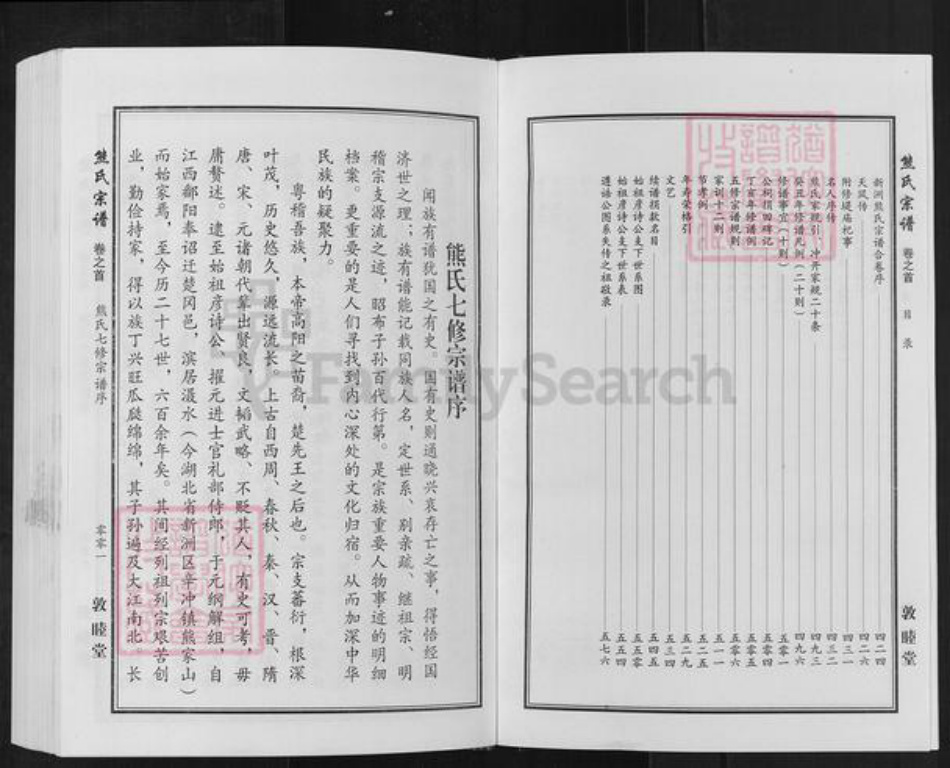 熊氏宗谱 卷之首 目录 敦睦堂
新洲熊氏宗谱合卷序 四二四
天然传 四二六
附修堤庙杞事 四三一
名人序传 四三二
熊氏家规引、冲开家规二十条 四九三
癸丑年修谱凡例（二十则） 四九六
修谱事宜（十则） 五零一
公祠捐田碑记 五零四
丁亥年修谱例 五零五
五修宗谱规则 五零六
家训十二则 五一一
节孝例 五二五
年寿荣格引 五二九
文艺 五三四
续谱捐款名目 五四五
始祖彦诗公支下世系图 五五零
始祖彦诗公支下世系表 五五四
遵祜公图系失传之祖敬录 五七六
熊氏七修宗谱序
闻族有谱犹国之有史。国有史则通晓兴衰存亡之事，得悟经国
济世之理；族有谱能记载同族人名，定世系、别亲疏、继祖宗、明
稽宗支源流之迹，昭布子孙百代行第。是宗族重要人物事迹的明细
档案。更重要的是人们寻找到内心深处的文化归宿。从而加深中华
民族的疑聚力。
粤稽吾族，本帝高阳之苗裔，楚先王之后也。宗支蕃衍，根深
叶茂，历史悠久，源远流长。上古自西周、春秋、秦、汉、晋、隋
唐、宋、元诸朝代辈出贤良，文韬武略、不贬其人，有史可考，毋
庸赘述。逮至始祖彦诗公，擢元进士官礼部侍郎，于元纲解组，自
江西鄱阳奉诏迁楚冈邑，滨居滠水（今湖北省新洲区辛冲镇熊家山）
而始家焉，至今历二十七世，六百余年矣。其间经列祖列宗艰苦创
业，勤俭持家，得以族丁兴旺瓜瓞绵绵，其子孙遍及大江南北。长
熊氏宗谱 卷之首 熊氏七修宗谱序 零零一 敦睦堂
FamilySearch